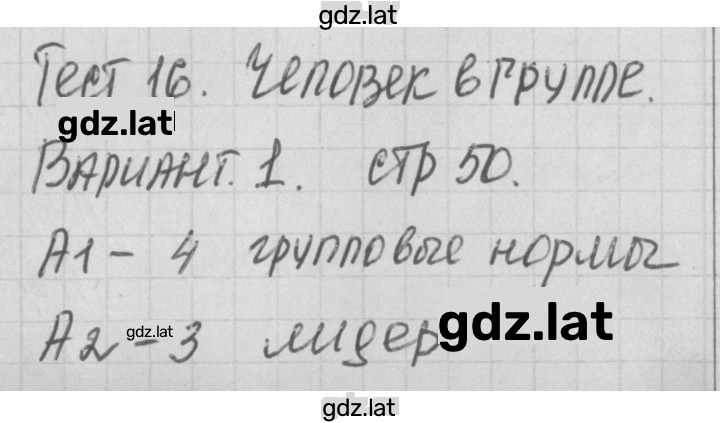 gdz.lat
Тест 16. Человек в группе.
gdz.lat
Вариант. 1. стр 50.
А1 - 4 групповые нормы
gdz.lat
А2 - 3 лидер
gdz.lat
gdz.lat